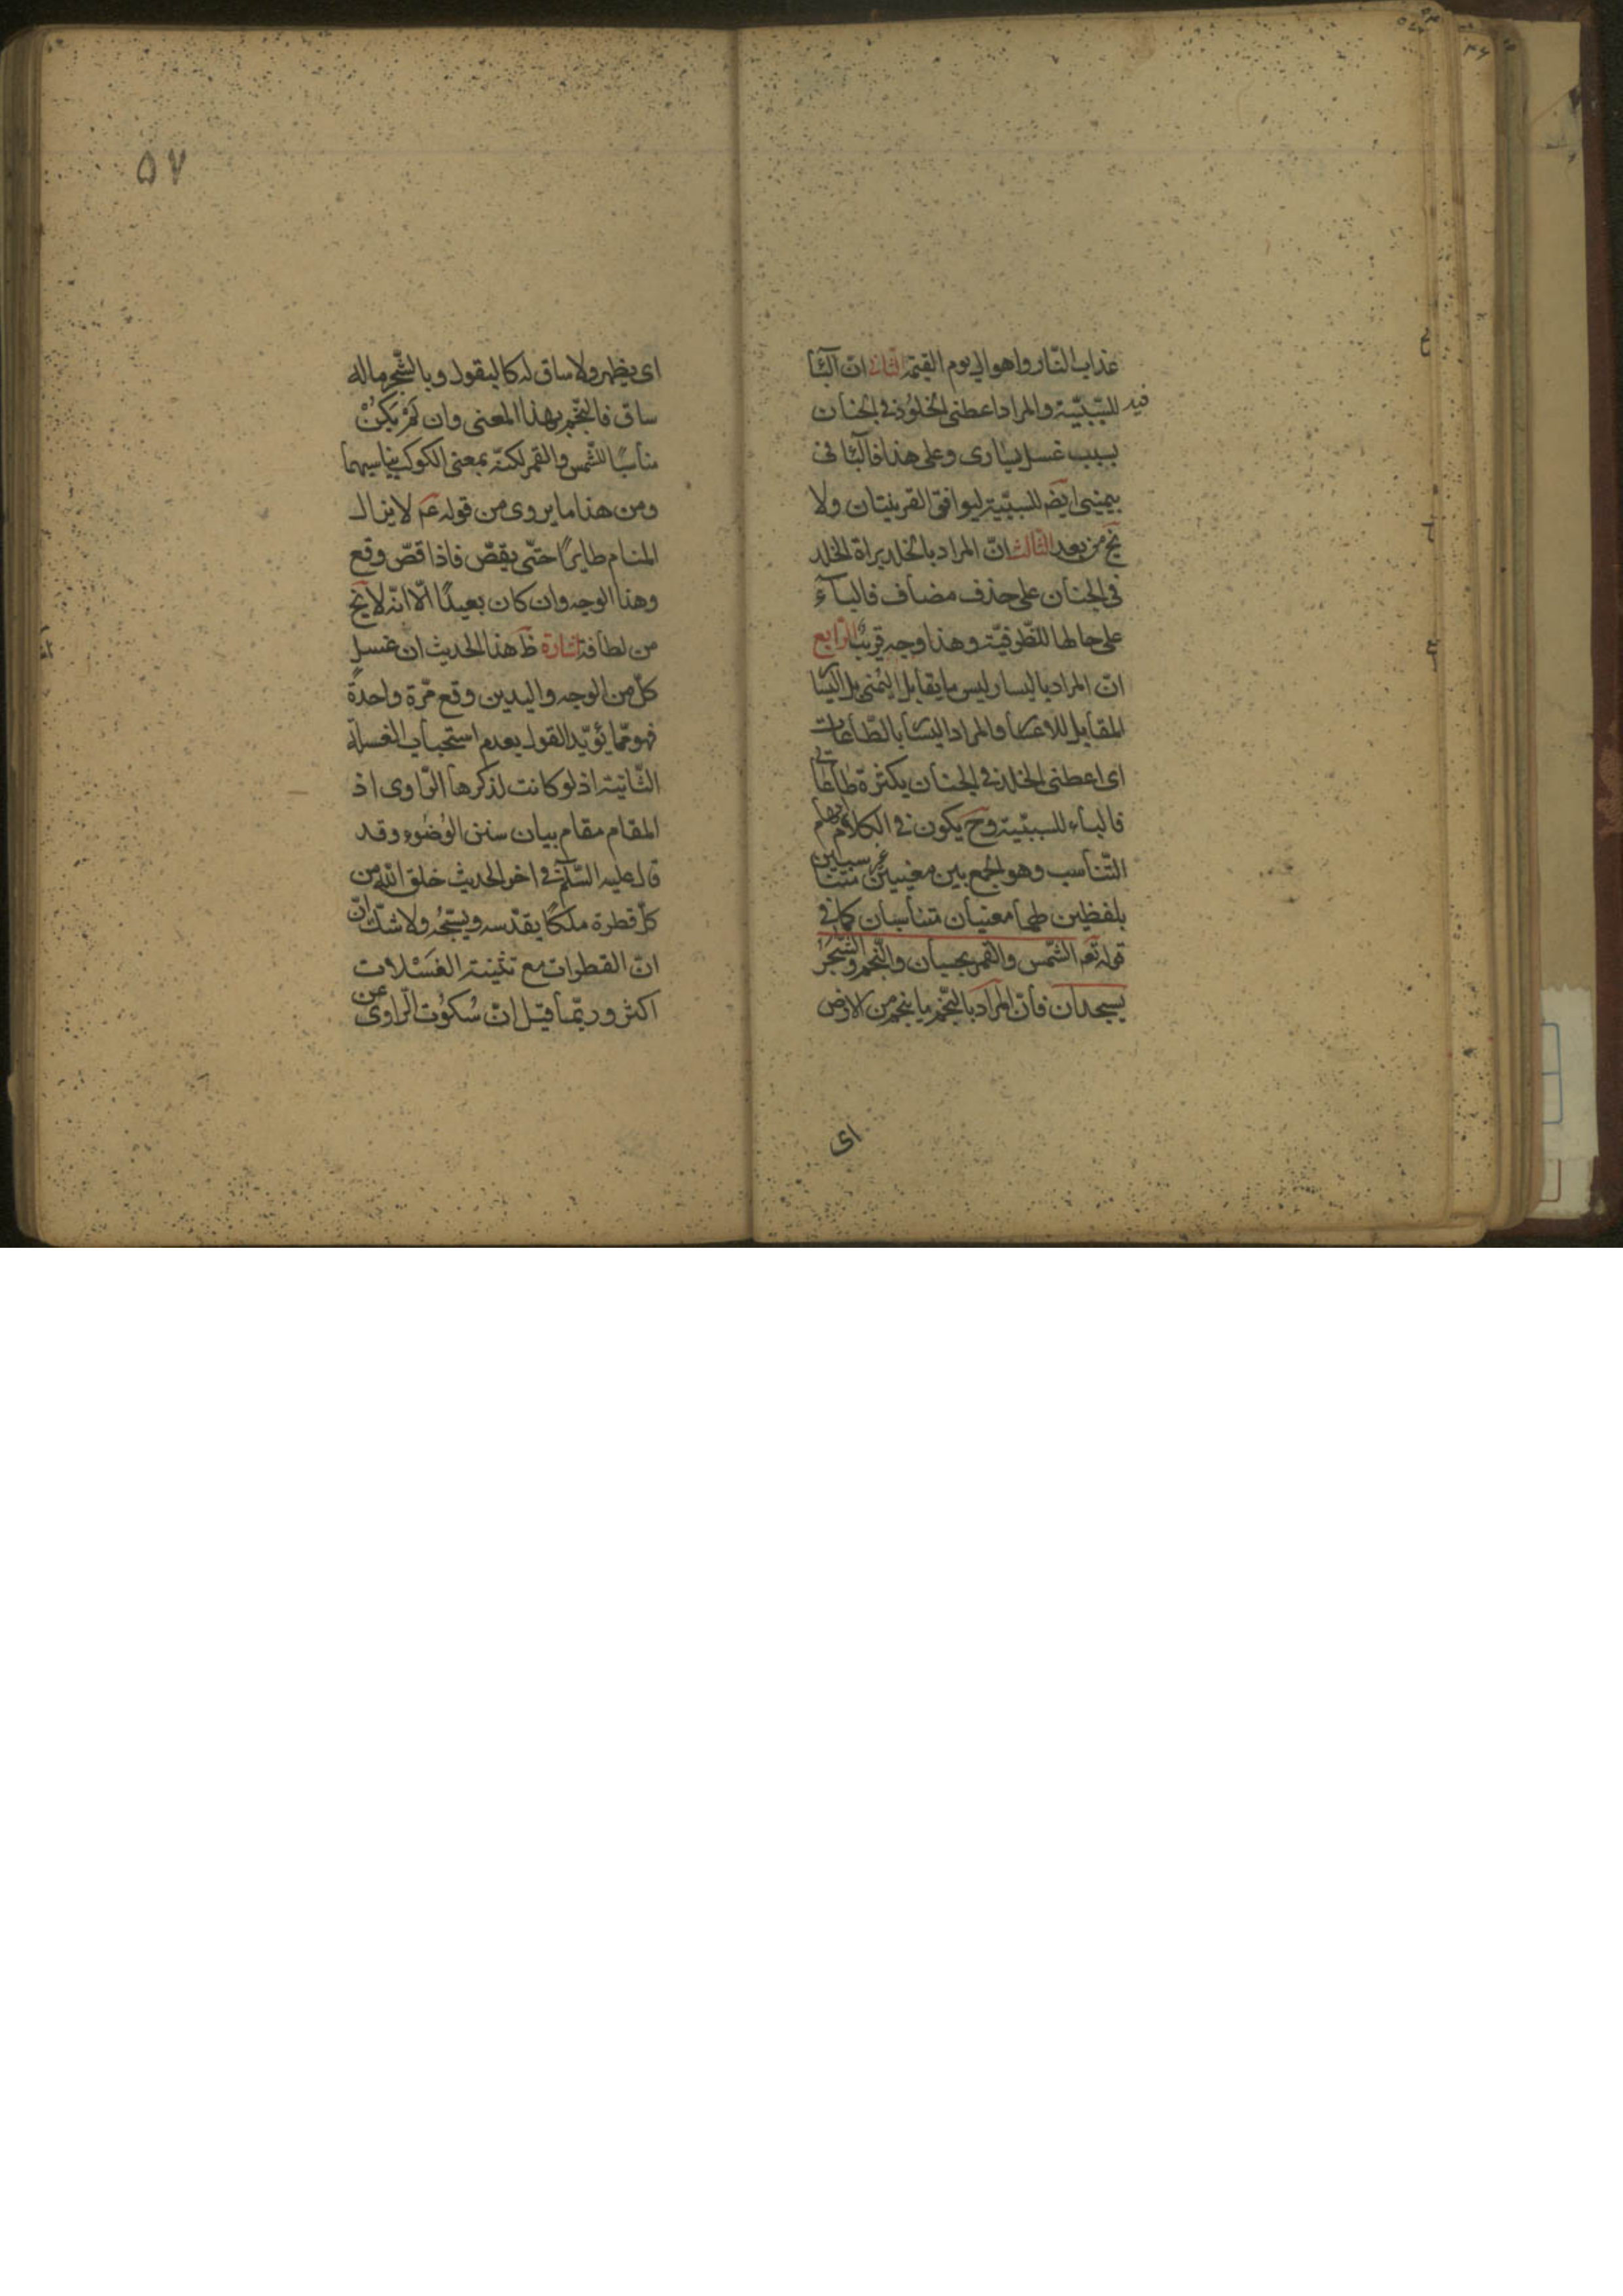 عذاب النّار واهوال يوم القيمة الثانى انّ البآء
فيه للسّببيّة والمراد اعطنى الخلود فى الجنان
بسبب غسل يسارى وعلى هذا فالبآء فى
بيمينى ايضَ للسببيّة ليوافق القرينتان ولا
يخ من بعد الثالث انّ المراد بالخلد براة الخلد
فى الجنان على حذف مضاف فالبآء
على حالها للظّرفيّة وهذا وجه قريب الرّابع
انّ المراد باليسار ليس ما يقابل اليمنى بل اليسار
المقابل للاعسار والمراد اليسار بالطّاعات
اى اعطنى الخلد فى الجنان بكثرة طاعاتى
فالباء للسببيّة وح يكون فى الكلام ايهام
التّناسب وهو الجمع بين معنيين غير متناسبين
بلفظين لهما معنيان متناسبان كما فى
قوله تعَ الشّمس والقمر بحسبان والنّجم والشّجر
يسجدان فانّ المراد بالنّجم ما ينجم من الارض
اى
۵۷
اى يظهر ولا ساق له كالبقول وبالشّجر ماله
ساق فالنّجم بهذا المعنى وان لَمْ يَكُنْ
مناسبًا للشّمس والقمر لكنّه بمعنى الكوكب يناسبهما
ومن هذا ما يروى من قوله عَم لا يزال
المنام طايرًا حتّى يقصّ فاذا قصّ وقع
وهذا الوجه وان كان بعيدًا الّا انّه لا يخ
من لطافة اشارة ظَ هذا الحديث ان غسل
كلّ من الوجه واليدين وقع مرّة واحدةً
فهو ممّا يؤيّد القول بعدم استحباب الغسلة
الثّانية اذ لو كانت لذكرها الرّاوى اذ
المقام مقام بيان سنن الوُضُوء وقد
قال عليه السّلم فى اخر الحديث خلق الله من
كلّ قطرة ملكًا يقدّسه ويسبّحه ولا شكّ انّ
انّ القطرات مع تثنية الغَسْلات
اكثر وربّما قيل انّ سُكُوت الرّاوى عن